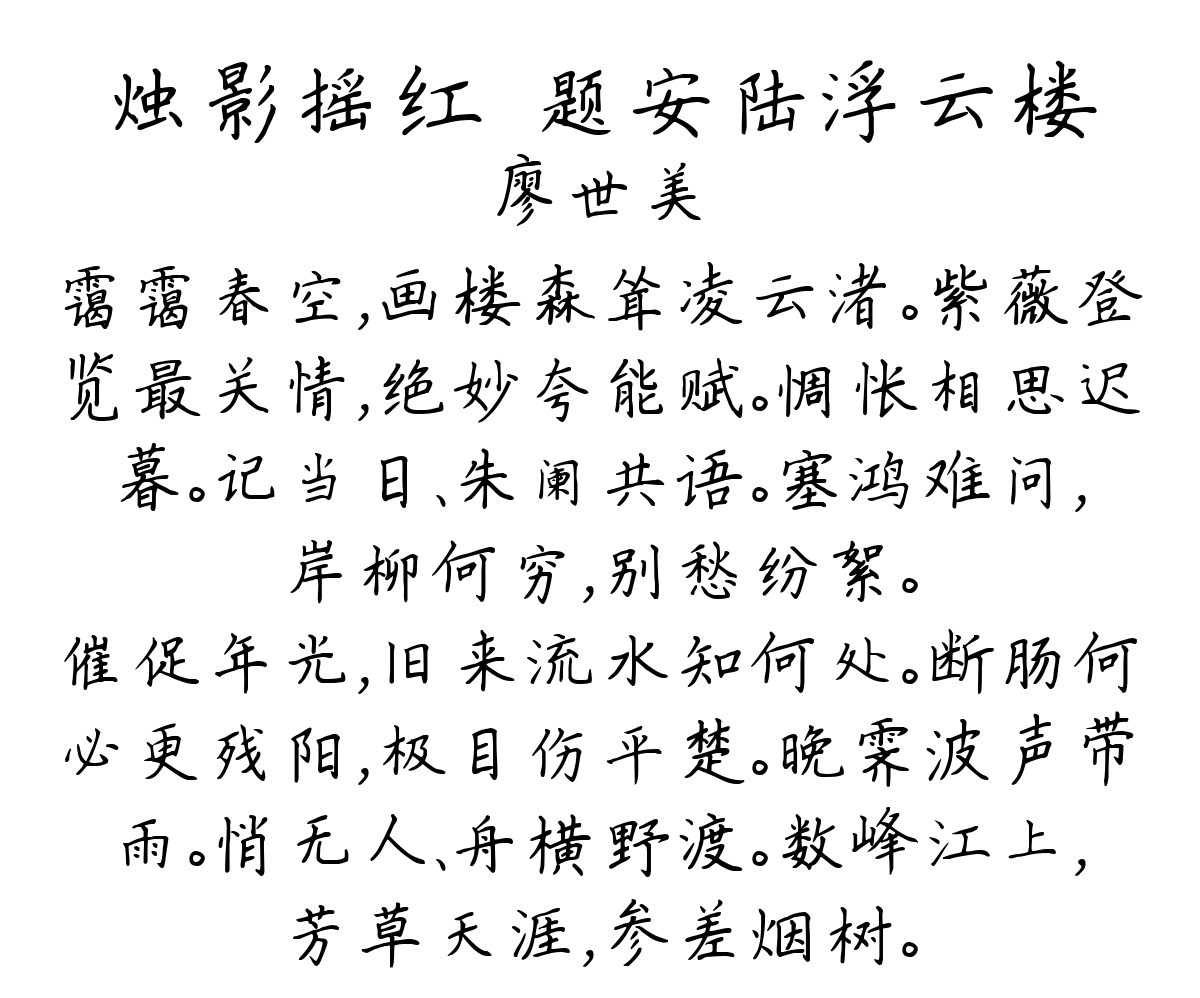 烛影摇红 题安陆浮云楼
廖世美
霭霭春空,画楼森耸凌云渚。紫薇登
览最关情,绝妙夸能赋。惆怅相思迟
暮。记当日、朱阑共语。塞鸿难问,
岸柳何穷,别愁纷絮。
催促年光,旧来流水知何处。断肠何
必更残阳,极目伤平楚。晚霁波声带
雨。悄无人、舟横野渡。数峰江上,
芳草天涯,参差烟树。